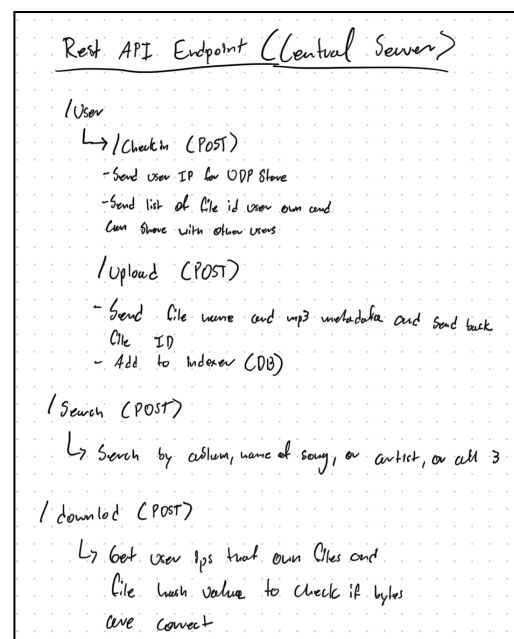 Rest API Endpoint (Central Server)
/User
↳ /Checkin (POST)
- Send user IP for UDP Share
- Send list of file id user own and
Can share with other users
/Upload (POST)
- Send file name and mp3 metadata and send back
file ID
- Add to Indexer (DB)
/Search (POST)
↳ Serch by ablum, name of song, or artist, or all 3
/downlod (POST)
↳ Get user Ips that own files and
file hash value to check if bytes
are correct